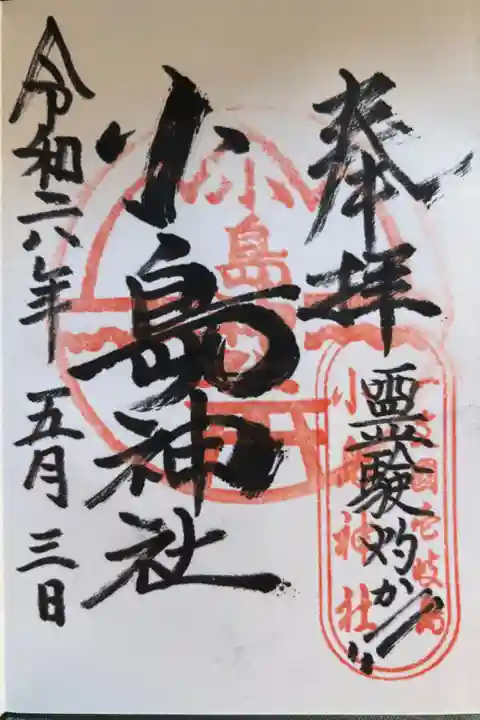 奉拝
霊験灼か
小島神社
令和六年 五月 三日
小島
小島神社